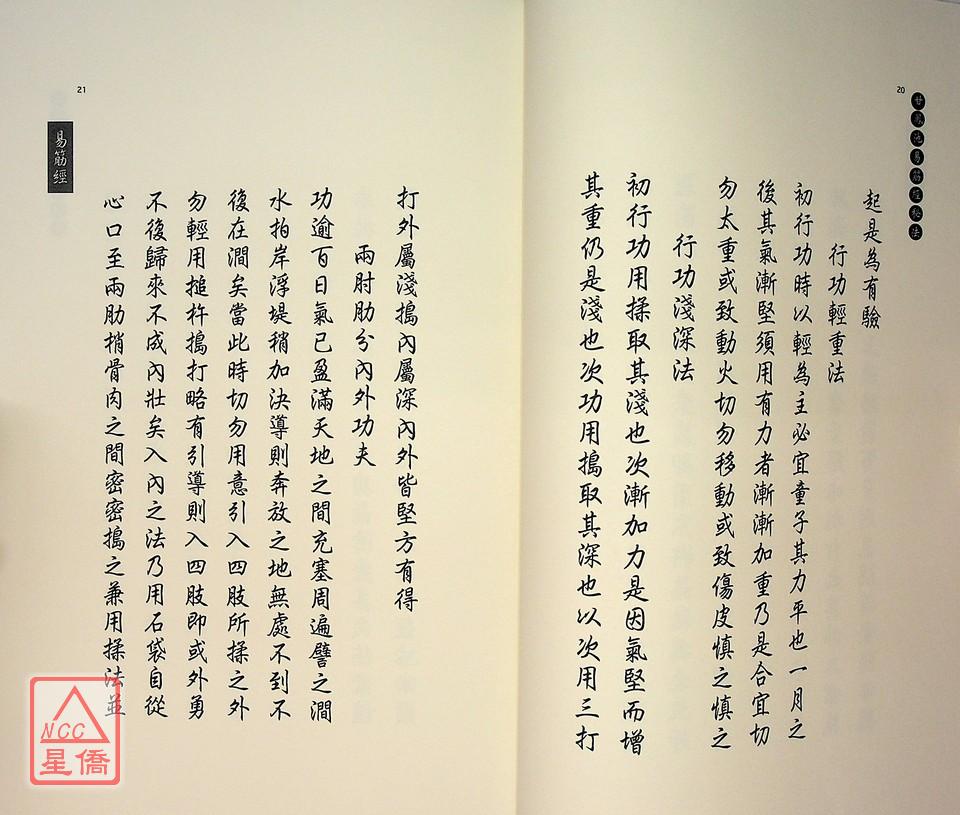 20
甘鳳池易筋經秘法
起是為有驗
行功輕重法
初行功時以輕為主必宜童子其力平也一月之
後其氣漸堅須用有力者漸漸加重乃是合宜切
勿太重或致動火切勿移動或致傷皮慎之慎之
行功淺深法
初行功用揉取其淺也次漸加力是因氣堅而增
其重仍是淺也次功用搗取其深也以次用三打
21
易筋經
打外屬淺搗內屬深內外皆堅方有得
兩肘肋分內外功夫
功逾百日氣已盈滿天地之間充塞周遍譬之澗
水拍岸浮堤稍加決導則奔放之地無處不到不
復在澗矣當此時切勿用意引入四肢所揉之外
勿輕用搥杵搗打略有引導則入四肢即或外勇
不復歸來不成內壯矣入內之法乃用石袋自從
心口至兩肋梢骨肉之間密密搗之兼用揉法並
NCC
星僑